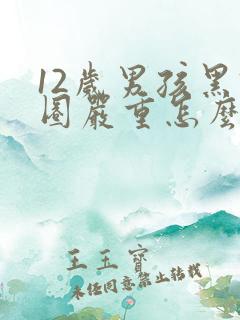 12歲男孩黑
圈嚴重怎麼
王玉寶
未经同意禁止转载